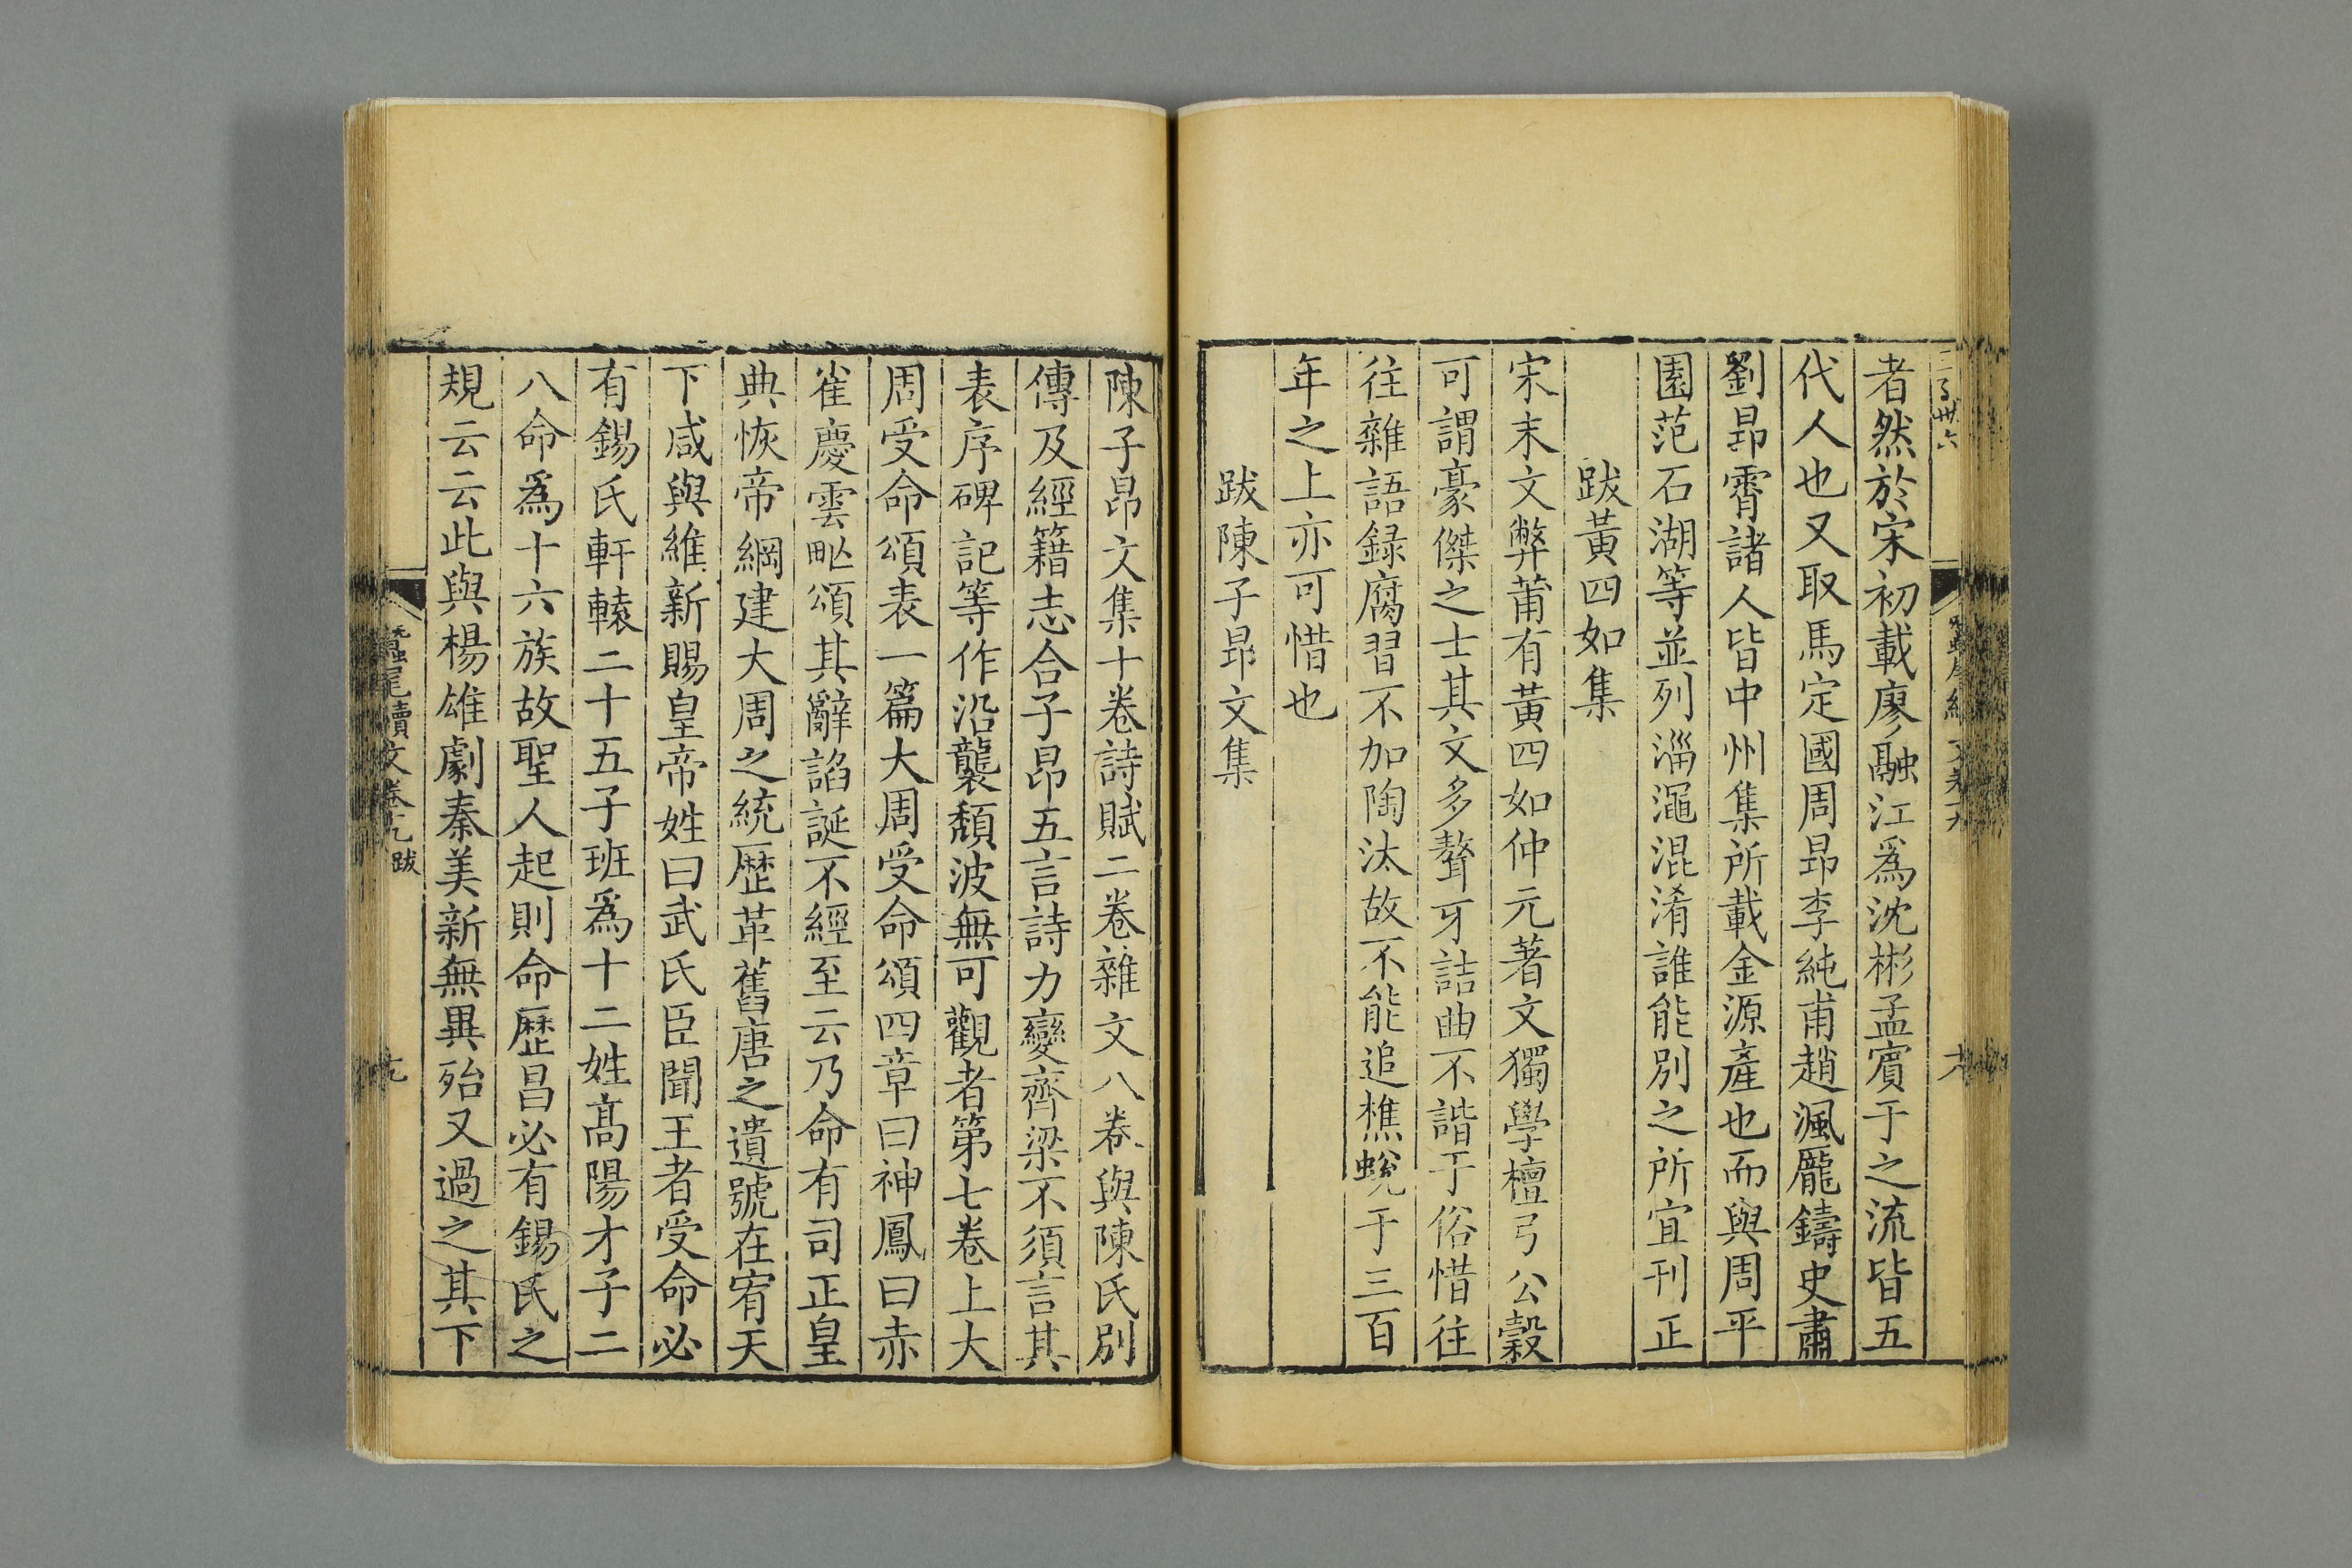 者然於宋初載廖融江爲沈彬孟賔于之流皆五
代人也又取馬定國周昂李純甫趙渢龎鑄史肅
劉昂霄諸人皆中州集所載金源產也而與周平
園范石湖等並列淄澠混淆誰能別之所宜刊正
跋黃四如集
宋末文弊莆有黃四如仲元著文獨學檀弓公穀
可謂豪傑之士其文多聱牙詰曲不諧于俗惜往
往雜語録腐習不加陶汰故不能追樵蛻于三百
年之上亦可惜也
跋陳子昂文集
陳子昂文集十卷詩賦二卷雜文八卷與陳氏別
傳及經籍志合子昂五言詩力變齊梁不須言其
表序碑記等作沿襲頽波無可觀者第七卷上大
周受命頌表一篇大周受命頌四章曰神鳳曰赤
雀慶雲甿頌其辭諂誕不經至云乃命有司正皇
典恢帝綱建大周之統歷革舊唐之遺號在宥天
下咸與維新賜皇帝姓曰武氏臣聞王者受命必
有錫氏軒轅二十五子班爲十二姓髙陽才子二
八命爲十六族故聖人起則命歷昌必有錫氏之
規云云此與楊雄劇秦美新無異殆又過之其下
蠶尾續文卷十九 跋